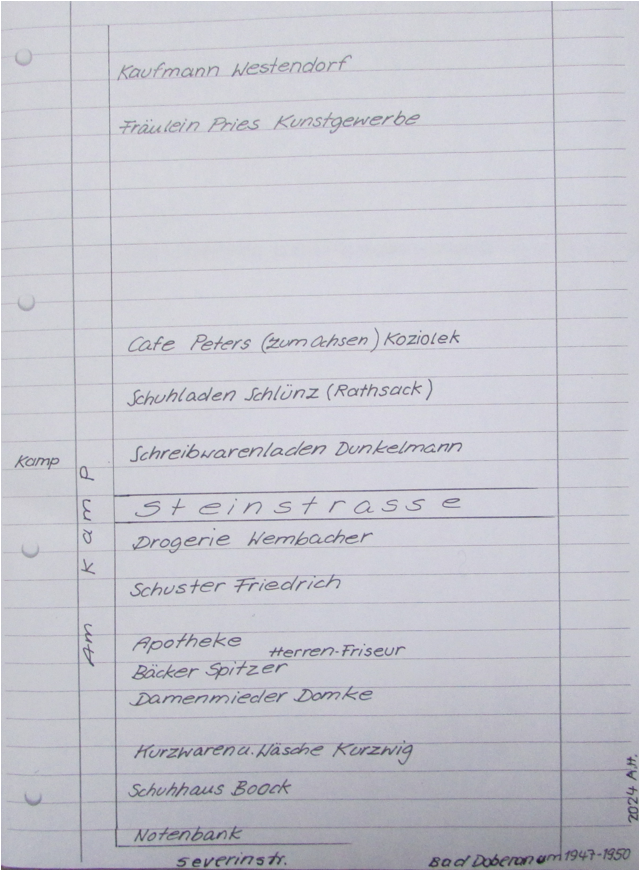 Kaufmann Westendorf
Fräulein Pries Kunstgewerbe
Cafe Peters (zum Ochsen) Koziolek
Schuhladen Schlünz (Rathsack)
Schreibwarenladen Dunkelmann
Kamp
Am Kamp
Steinstrasse
Drogerie Wembacher
Schuster Friedrich
Apotheke
Herren-Friseur
Bäcker Spitzer
Damenmieder Domke
Kurzwaren u. Wäsche Kurzwig
Schuhhaus Boock
Notenbank
Severinstr.
Bad Doberan um 1947-1950
2024 A.H.